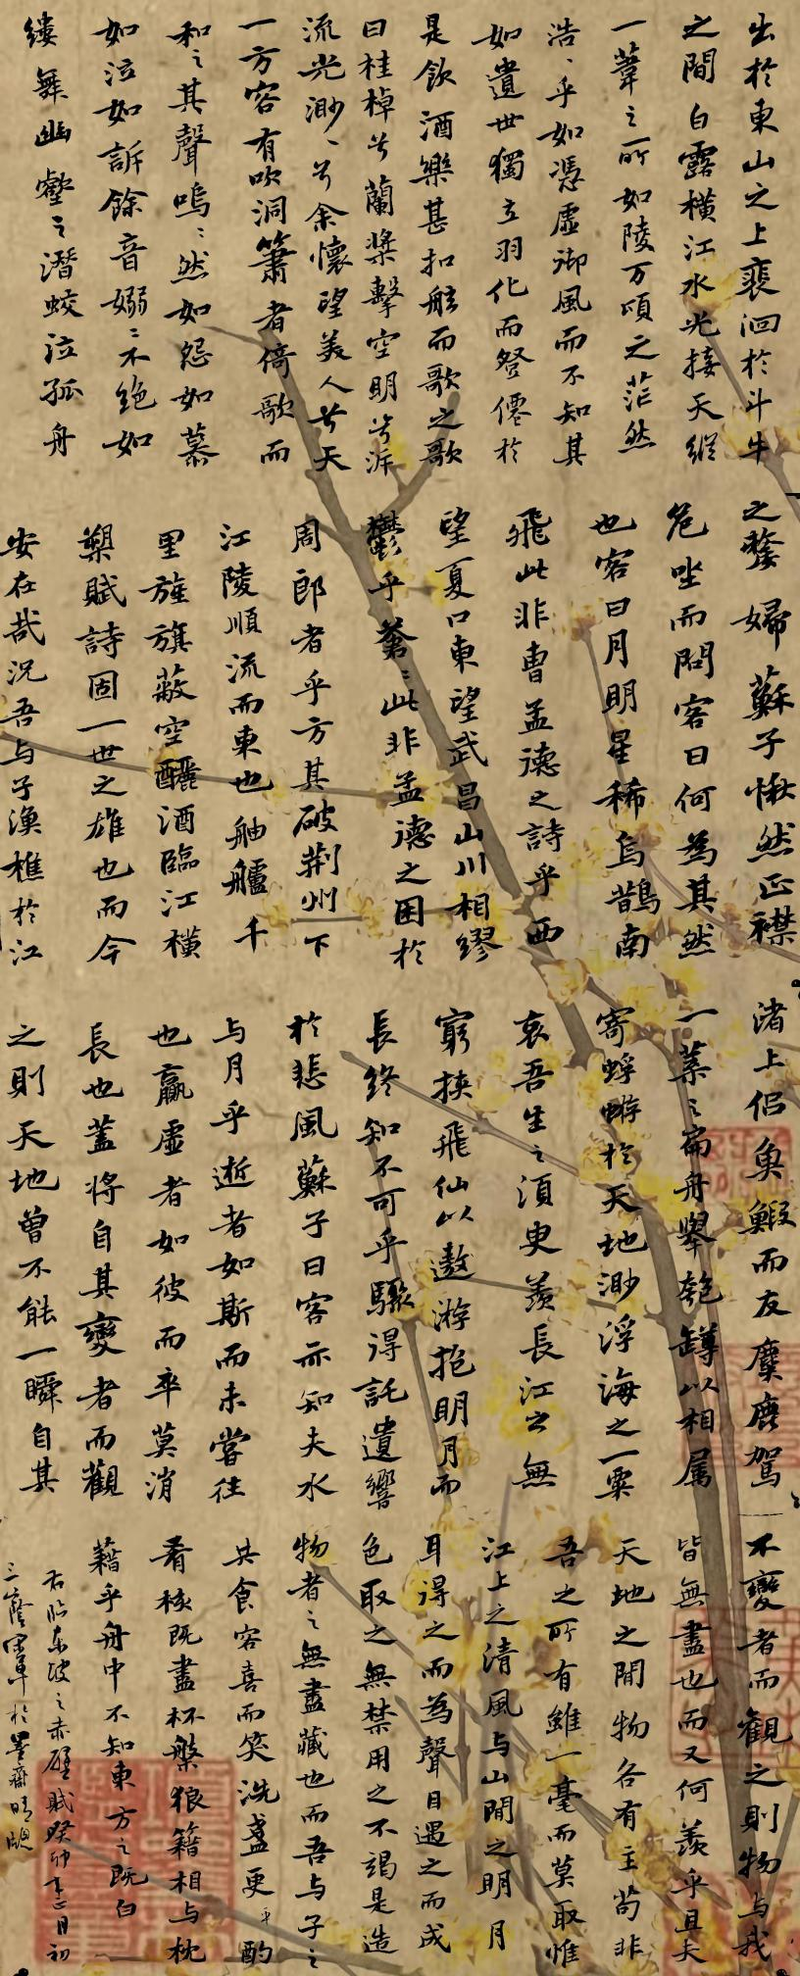 出於東山之上裵洄於斗牛
之間白露橫江水光接天縱
一葦之所如陵万頃之茫然
浩〻乎如馮虛御風而不知其
如遺世獨立羽化而登僊於
是飲酒樂甚扣舷而歌之歌
曰桂棹兮蘭槳擊空明兮泝
流光渺〻兮余懷望美人兮天
一方客有吹洞簫者倚歌而
和之其聲嗚〻然如怨如慕
如泣如訴餘音嫋〻不絕如
縷舞幽壑之潛蛟泣孤舟
之嫠婦蘇子愀然正襟
危坐而問客曰何為其然
也客曰月明星稀烏鵲南
飛此非曹孟德之詩乎西
望夏口東望武昌山川相繆
鬱乎蒼〻此非孟德之困於
周郎者乎方其破荆州下
江陵順流而東也舳艫千
里旌旗蔽空釃酒臨江橫
槊賦詩固一世之雄也而今
安在哉況吾与子漁樵於江
渚上侶魚鰕而友麋鹿駕
一葉之扁舟舉匏罇以相属
寄蜉蝣於天地渺浮海之一粟
哀吾生之須臾羨長江之無
窮挾飛仙以遨游抱明月而
長終知不可乎驟得託遺響
於悲風蘇子曰客亦知夫水
与月乎逝者如斯而未嘗往
也贏虛者如彼而卒莫消
長也蓋將自其變者而觀
之則天地曾不能一瞬自其
不變者而觀之則物与我
皆無盡也而又何羨乎且夫
天地之間物各有主苟非
吾之所有雖一毫而莫取惟
江上之清風与山間之明月
耳得之而為聲目遇之而成
色取之無禁用之不竭是造
物者之無盡藏也而吾与子之
共食客喜而笑洗盞更酌
肴核既盡杯槃狼籍相与枕
藉乎舟中不知東方之既白
右臨東坡之赤壁賦癸卯年正月初
三於墨齋晴窗